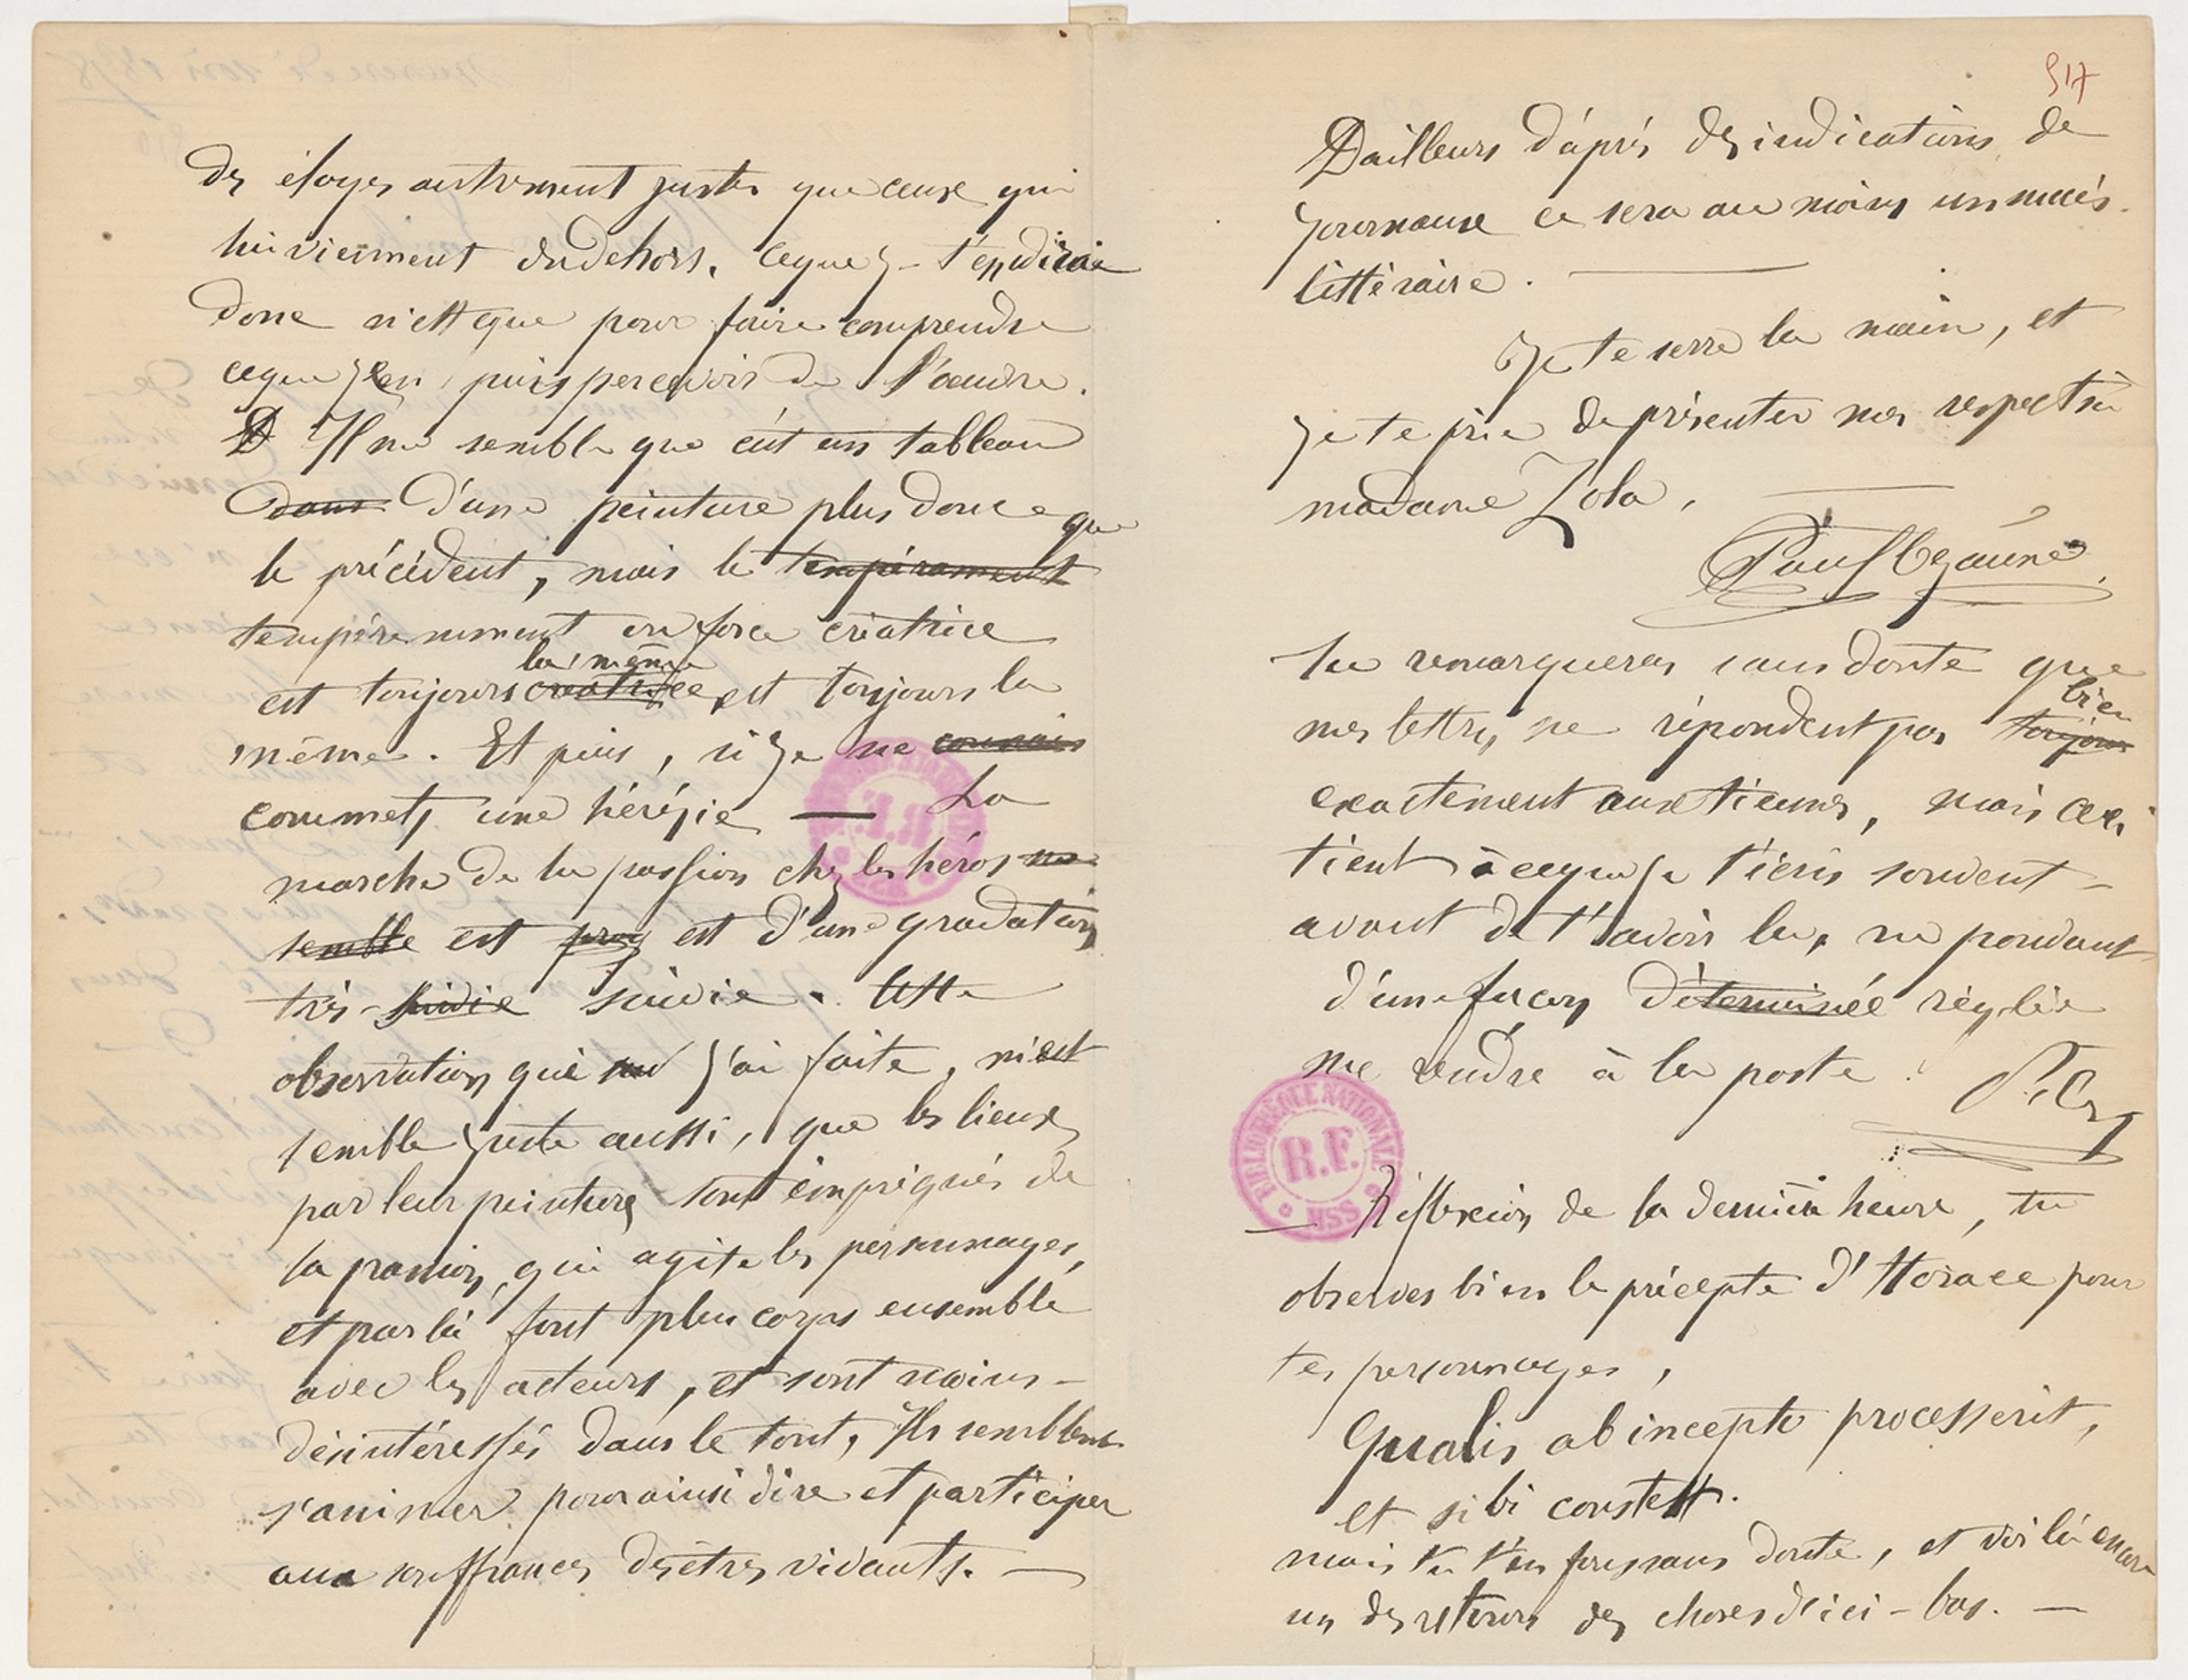 des éloges autrement justes que ceux qui
lui viennent du dehors. Ce que je t'en dirai
donc n'est que pour faire comprendre
ce que j'en puis percevoir de l'œuvre.
D Il me semble que c'est un tableau
dans d'une peinture plus douce que
le précédent, mais le tempérament
tempéramment ou force créatrice
la même
est toujours créatrice est toujours la
même. Et puis, si je ne connais
commets une hérésie — La
marche de la passion chez les héros me
semble est prog est d'une gradation
très-suivie suivie. Cette
observation que j'ai faite, m'est
semble juste aussi, que les lieux
par leur peinture sont imprégnés de
la passion qui agite les personnages,
et par là font plus corps ensemble
avec les acteurs, et sont moins-
désintéressés dans le tout. Ils semblent
s'animer pour ainsi dire et participer
aux souffrances des êtres vivants. —
517
D'ailleurs d'après des indications de
journaux ce sera au moins un succès
littéraire. —
Je te serre la main, et
je te prie de présenter mes respects à
madame Zola, —
Paul Cezanne
tu remarqueras sans doute que
bien
mes lettres ne répondent pas toujours
exactement aux tiennes, mais ceci
tient à ce que je t'écris souvent-
avant de t'avoir lu, ne pouvant
d'une façon déterminée réglée
me rendre à la poste.
P. Cz
BIBLIOTHÈQUE NATIONALE
R.F.
MSS
— Réflexion de la dernière heure, tu
observes bien le précepte d'Horace pour
tes personnages,
Qualis ab incepto processerit,
et sibi constet.
mais tu t'en fous sans doute, et voilà encore
un des retours des choses d'ici-bas. —